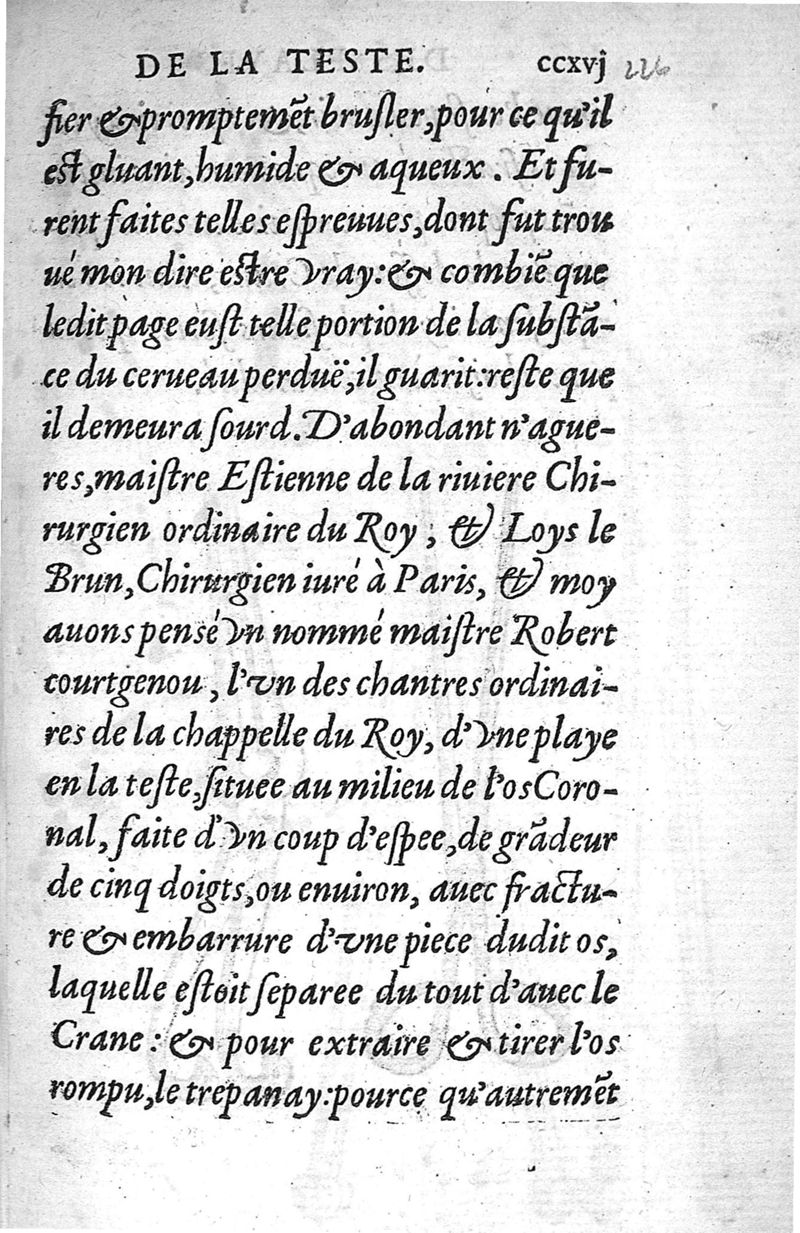 DE LA TESTE. ccxvj 226
fier & promptemēt brusler, pour ce qu'il
est gluant, humide & aqueux. Et fu-
rent faites telles espreuues, dont fut trou
ué mon dire estre vray: & combiē que
ledit page eust telle portion de la substā-
ce du cerueau perduë, il guarit: reste que
il demeura sourd. D'abondant n'ague-
res, maistre Estienne de la riuiere Chi-
rurgien ordinaire du Roy, & Loys le
Brun, Chirurgien iuré à Paris, & moy
auons pensé vn nommé maistre Robert
courtgenou, l'vn des chantres ordinai-
res de la chappelle du Roy, d'vne playe
en la teste, situee au milieu de l'os Coro-
nal, faite d'vn coup d'espee, de grādeur
de cinq doigts, ou enuiron, auec fractu-
re & embarrure d'vne piece dudit os,
laquelle estoit separee du tout d'auec le
Crane: & pour extraire & tirer l'os
rompu, le trepanay: pource qu'autremēt